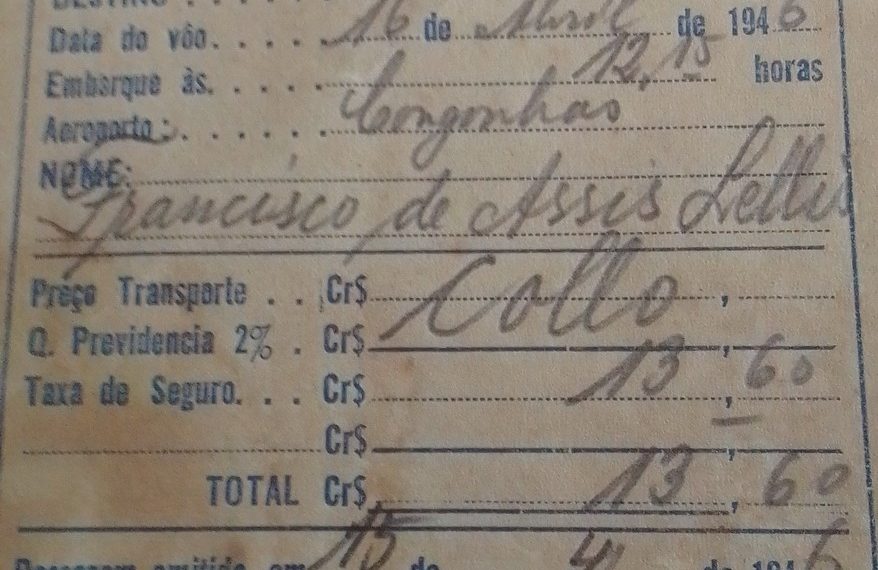 DESTINO . . .
Data do vôo. . . . . 16 de Abril de 1946
Embarque às. . . . . 12,15 horas
Aeroporto: . . . . . . Congonhas
NOME:
Francisco de Assis Lellis
Preço Transporte . . Cr$ Collo ,
Q. Previdencia 2% . Cr$ ,
Taxa de Seguro. . . Cr$ 13,60
Cr$ ,
TOTAL Cr$ 13,60
Passagem emitida em 15 de 4 de 1946